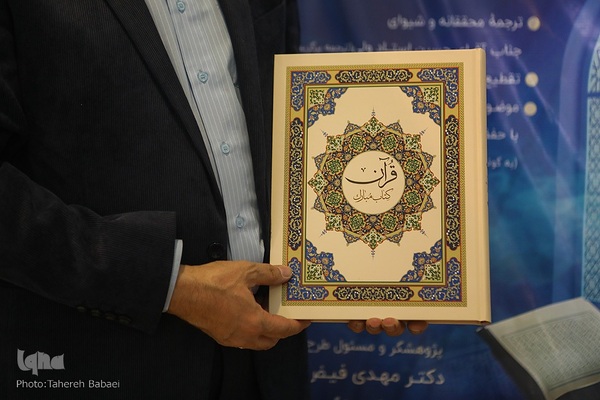 ترجمۀ محققانه و شیوای
جناب
تقطیع
موضو
با حف
قرآن
کتاب مبارک
پژوهشگر و مسئول طرح
دکتر مهدی فیض
iqna
Photo:Tahereh Babaei